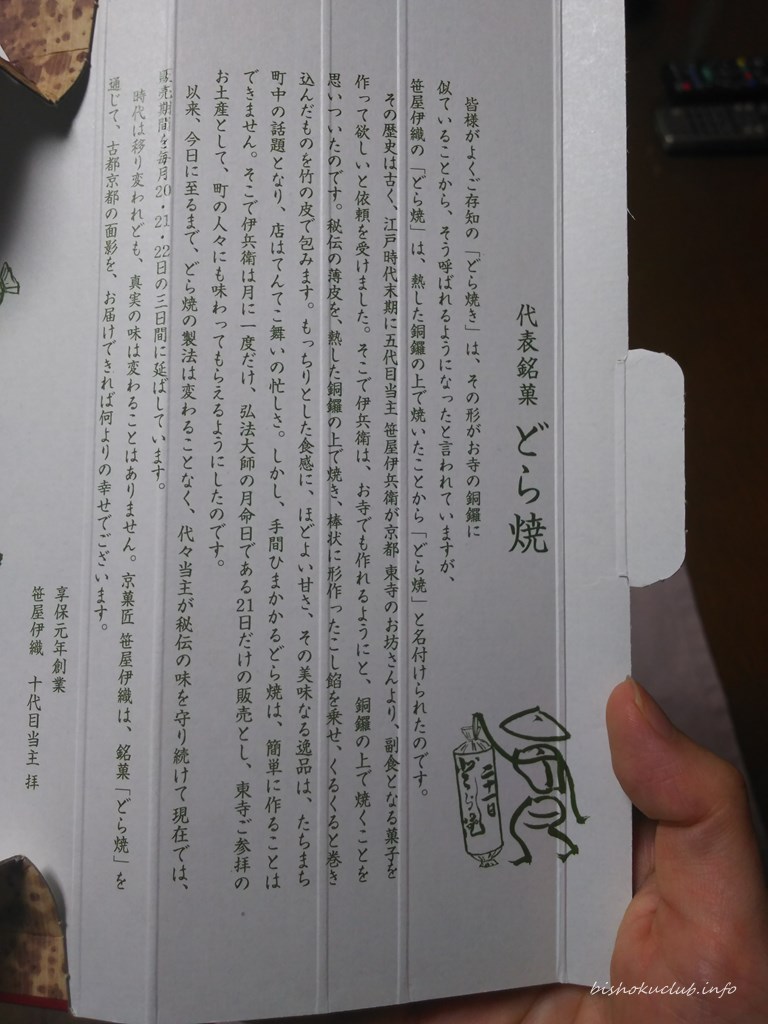 代表銘菓 どら焼
皆様がよくご存知の「どら焼き」は、その形がお寺の銅鑼に
似ていることから、そう呼ばれるようになったと言われていますが、
笹屋伊織の「どら焼」は、熱した銅鑼の上で焼いたことから「どら焼」と名付けられたのです。
その歴史は古く、江戸時代末期に五代目当主 笹屋伊兵衛が京都 東寺のお坊さんより、副食となる菓子を
作って欲しいと依頼を受けました。そこで伊兵衛は、お寺でも作れるようにと、銅鑼の上で焼くことを
思いついたのです。秘伝の薄皮を、熱した銅鑼の上で焼き、棒状に形作ったこし餡を乗せ、くるくると巻き
込んだものを竹の皮で包みます。もっちりとした食感に、ほどよい甘さ、その美味なる逸品は、たちまち
町中の話題となり、店はてんてこ舞いの忙しさ。しかし、手間ひまかかるどら焼は、簡単に作ることは
できません。そこで伊兵衛は月に一度だけ、弘法大師の月命日である21日だけの販売とし、東寺ご参拝の
お土産として、町の人々にも味わってもらえるようにしたのです。
以来、今日に至るまで、どら焼の製法は変わることなく、代々当主が秘伝の味を守り続けて現在では、
販売期間を毎月20・21・22日の三日間に延ばしています。
時代は移り変われども、真実の味は変わることはありません。京菓匠 笹屋伊織は、銘菓「どら焼」を
通じて、古都京都の面影を、お届けできれば何よりの幸せでございます。
享保元年創業
笹屋伊織 十代目当主 拝
二十一日
どら焼
bishokuclub.info